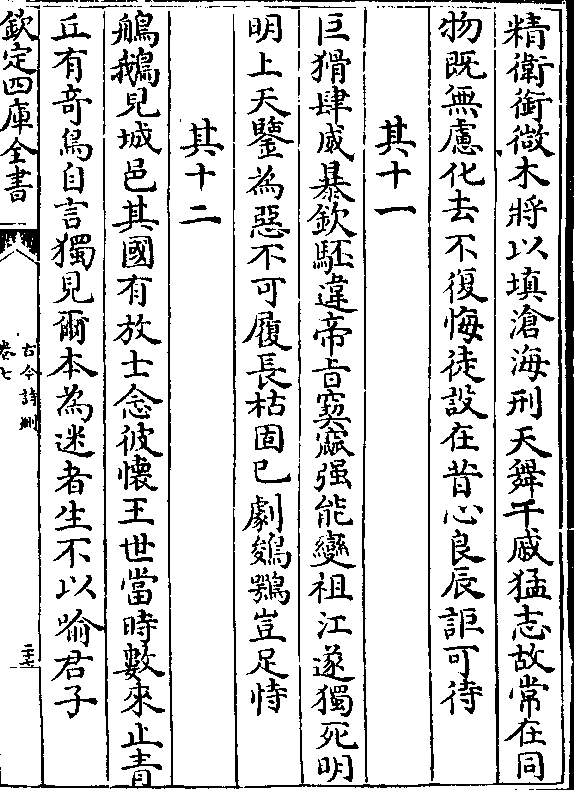 精衛銜微木將以填滄海刑天舞干戚猛志故常在同
物既無慮化去不復悔徒設在昔心良辰詎可待
其十一
巨猾肆威暴欽駓違帝旨窫窳强能變祖江遂獨死明
明上天鑒為惡不可履長枯固已劇鵕鶚豈足恃
其十二
鵃鵝見城邑其國有放士念彼懷王世當時數來止青
丘有奇鳥自言獨見爾本為迷者生不以喻君子
欽定四庫全書
古今詩刪
卷七
二十七